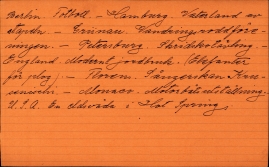 Berlin. Tolboll. — Hamburg. Vaterland av
stapeln. — Grünau. Landningsroddföre-
ningen. — Petersburg. Skridskotäfling. —
England. Modernt jordbruk. (Elefanter
för plog). — Korea. Sångerskan
— Monaco. Motorbåtsutställning.
U.S.A. En eldsvåda i Hot Springs.